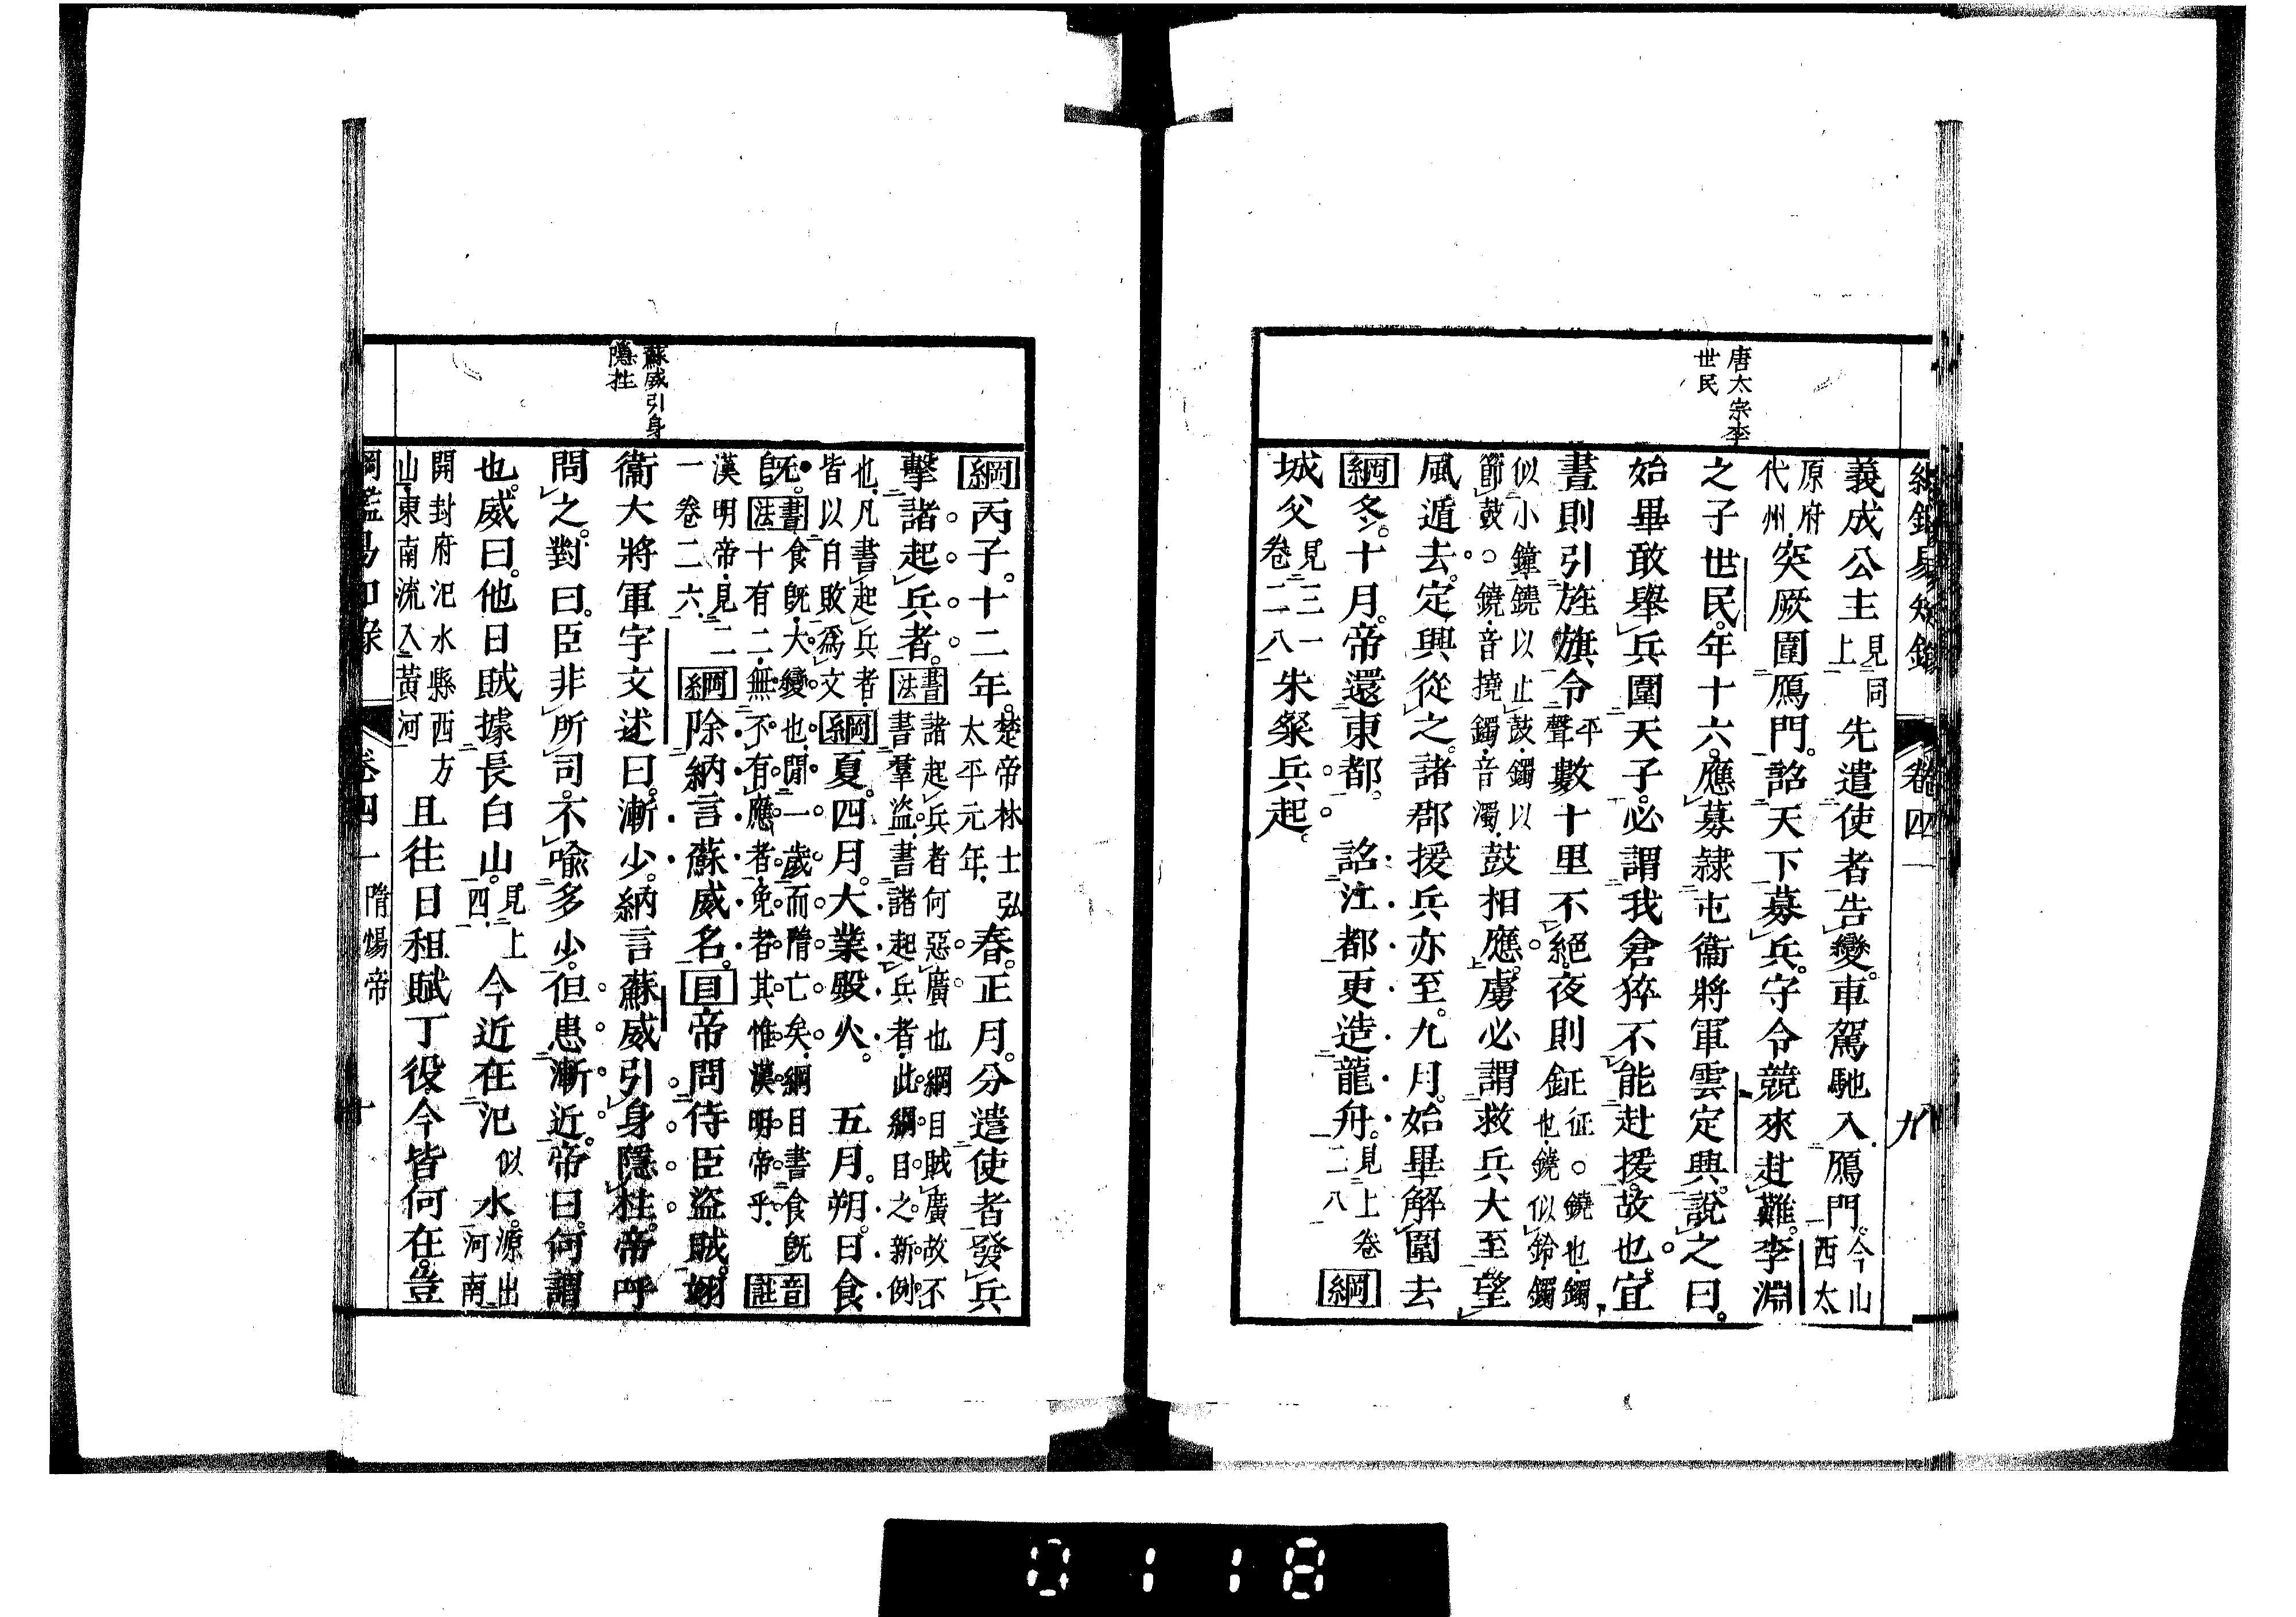 唐太宗李
世民
義成公主見同上先遣使者告變。車駕馳入鴈門。今山西太
原府代州突厥圍鴈門。詔天下募兵。守令競來赴難。李淵
之子世民。年十六。應募隷屯衞將軍雲定興。說之曰。
始畢敢舉兵圍天子。必謂我倉猝不能赴援。故也。宜
晝則引旌旗令平聲數十里不絕。夜則鉦征。○鐃也。鐲也。鐃似鈴。鐲
似小鐘。鐃以止鼓。鐲以節鼓。○鐃。音撓。鐲。音濁。鼓相應。虜必謂救兵大至。望
風遁去。定興從之。諸郡援兵亦至。九月。始畢解圍去
綱冬。十月。帝還東都。詔江都更造龍舟。見上卷二八綱
城父見三一卷二八朱粲兵起。
卷四
九
蘇威引身
隱拄
綱丙子。十二年。楚帝林士弘太平元年。春。正月。分遣使者發兵
擊諸起兵者。書法書諸起兵者何惡廣也綱目賊廣故不書羣盜。書諸起兵者。此綱目之新例
也。凡書起兵者。皆以自敗爲文綱夏。四月。大業殿火。五月。朔。日食
旣。書法食旣。大變也。閒一歲而隋亡矣。綱目書食旣自十有二。無不有應者。免者其惟漢明帝乎。音註
漢明帝。見二一卷二六綱除納言蘇威名。目帝問侍臣盜賊。翊
衞大將軍宇文述曰。漸少。納言蘇威引身隱柱。帝呼
問之。對曰。臣非所司。不喻多少。但患漸近。帝曰。何謂
也。威曰。他日賊據長白山。見上四今近在汜似水。源出河南
開封府汜水縣西方山。東南流入黃河且往日租賦丁役今皆何在。豈
卷四
隋煬帝
十
0118